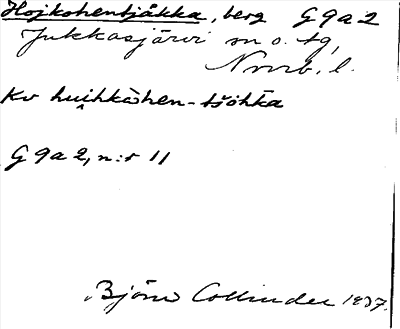 Hojkohentjåkka, berg G 9 a 2
Jukkasjärvi sn o. tg,
Norrb. l.
Kv huihkàhen-tšöhka
G 9 a 2, n:r 11
Björn Collinder 1937.